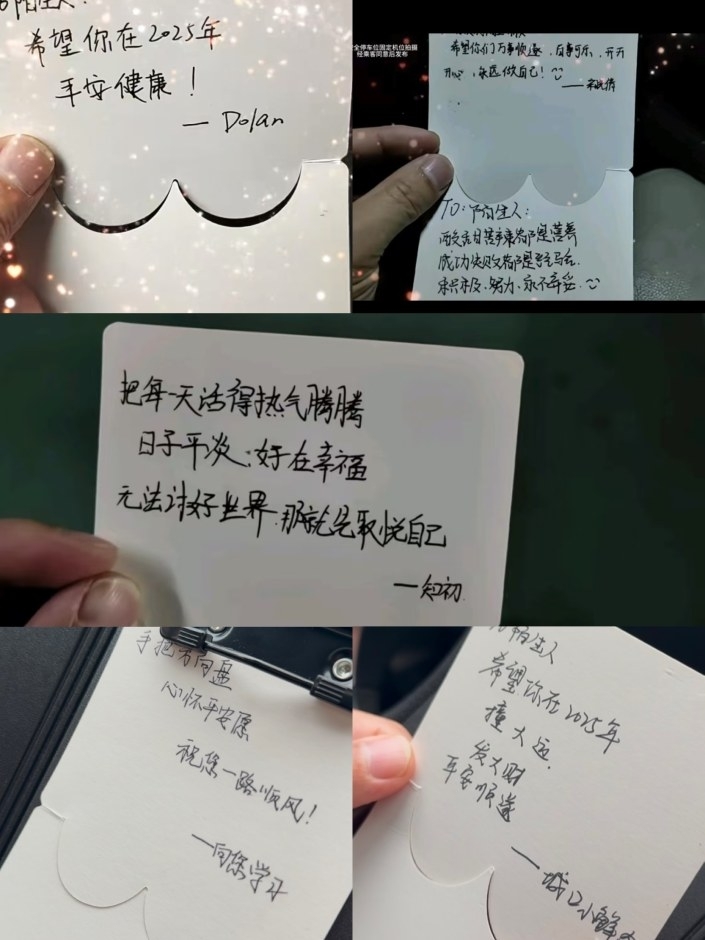 陌生人：
希望你在2025年
平安健康！
— Dolan
全停车位固定机位拍摄
经乘客同意后发布
希望你们万事顺遂，百事可乐，开开
心心，永远做自己！
TO：陌生人：
成功失败
努力，永不
把每一天活得热气腾腾
日子平淡，好在幸福
无法讨好世界，那就先取悦自己
—知初
手把方向盘
心怀平安愿
祝您一路顺风！
—向您学习
陌生人
希望你在2025年
撞大运，
发大财
平安顺遂
—城口小